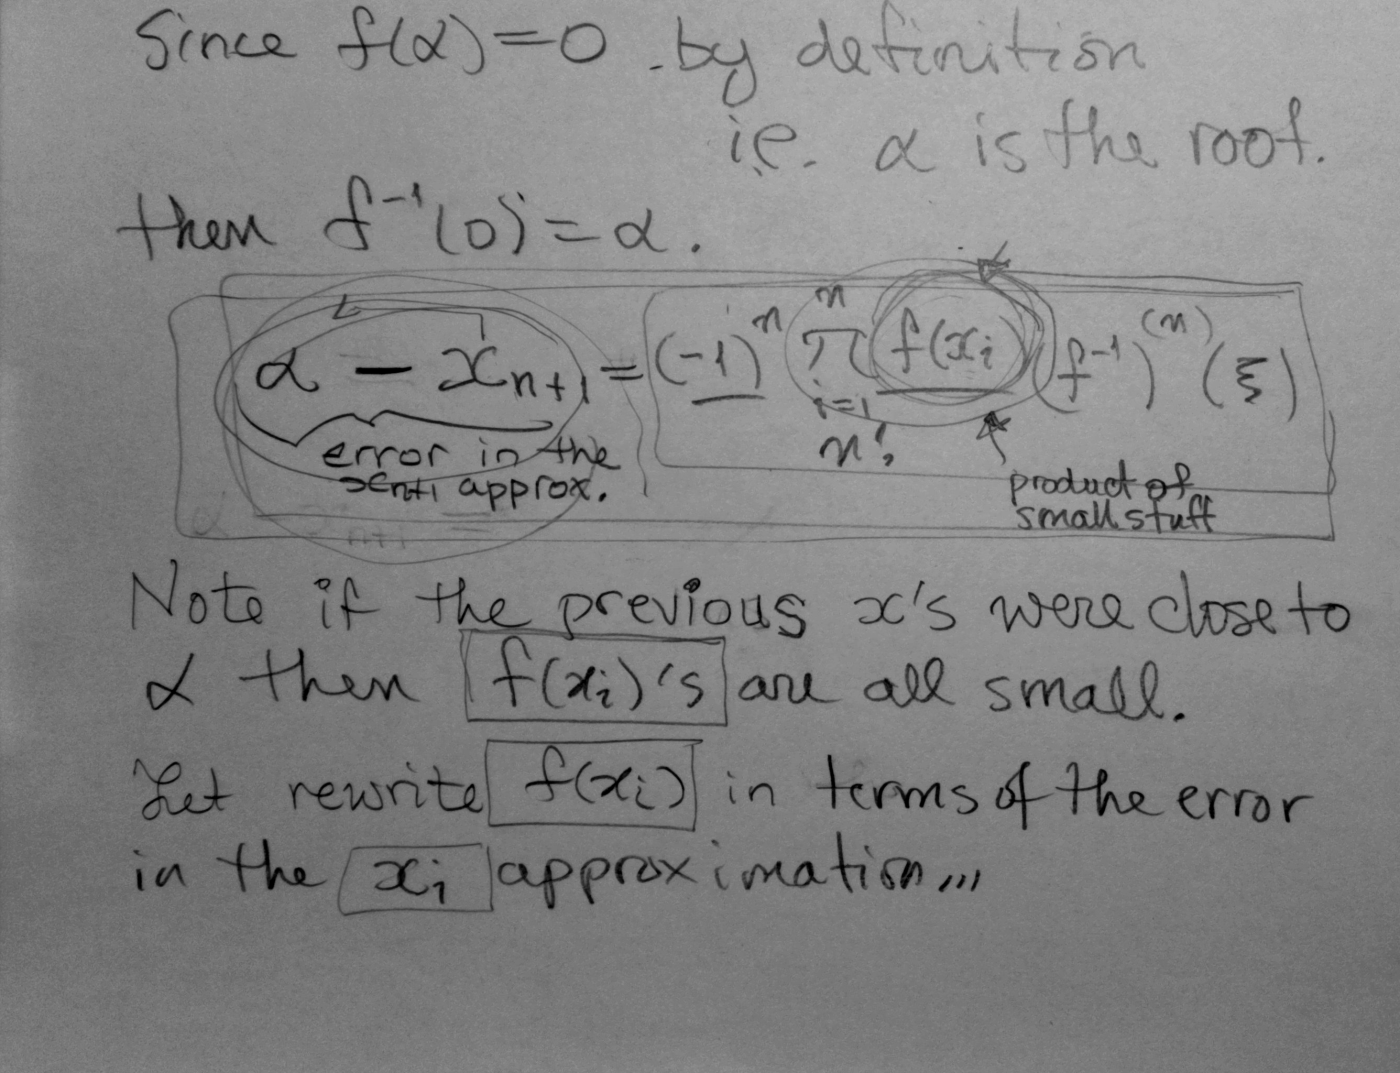 Since f(α)=0 . by definition
i.e. α is the root.
then f⁻¹(0) = α.
α − xₙ₊₁ = (-1)ⁿ π f(xᵢ) (f⁻¹)⁽ⁿ⁾ (ξ)
n
i=1
n!
error in the
xₙ₊₁ approx.
product of
small stuff
Note if the previous x's were close to
α then f(xᵢ)'s are all small.
Let rewrite f(xᵢ) in terms of the error
in the xᵢ approximation,,,